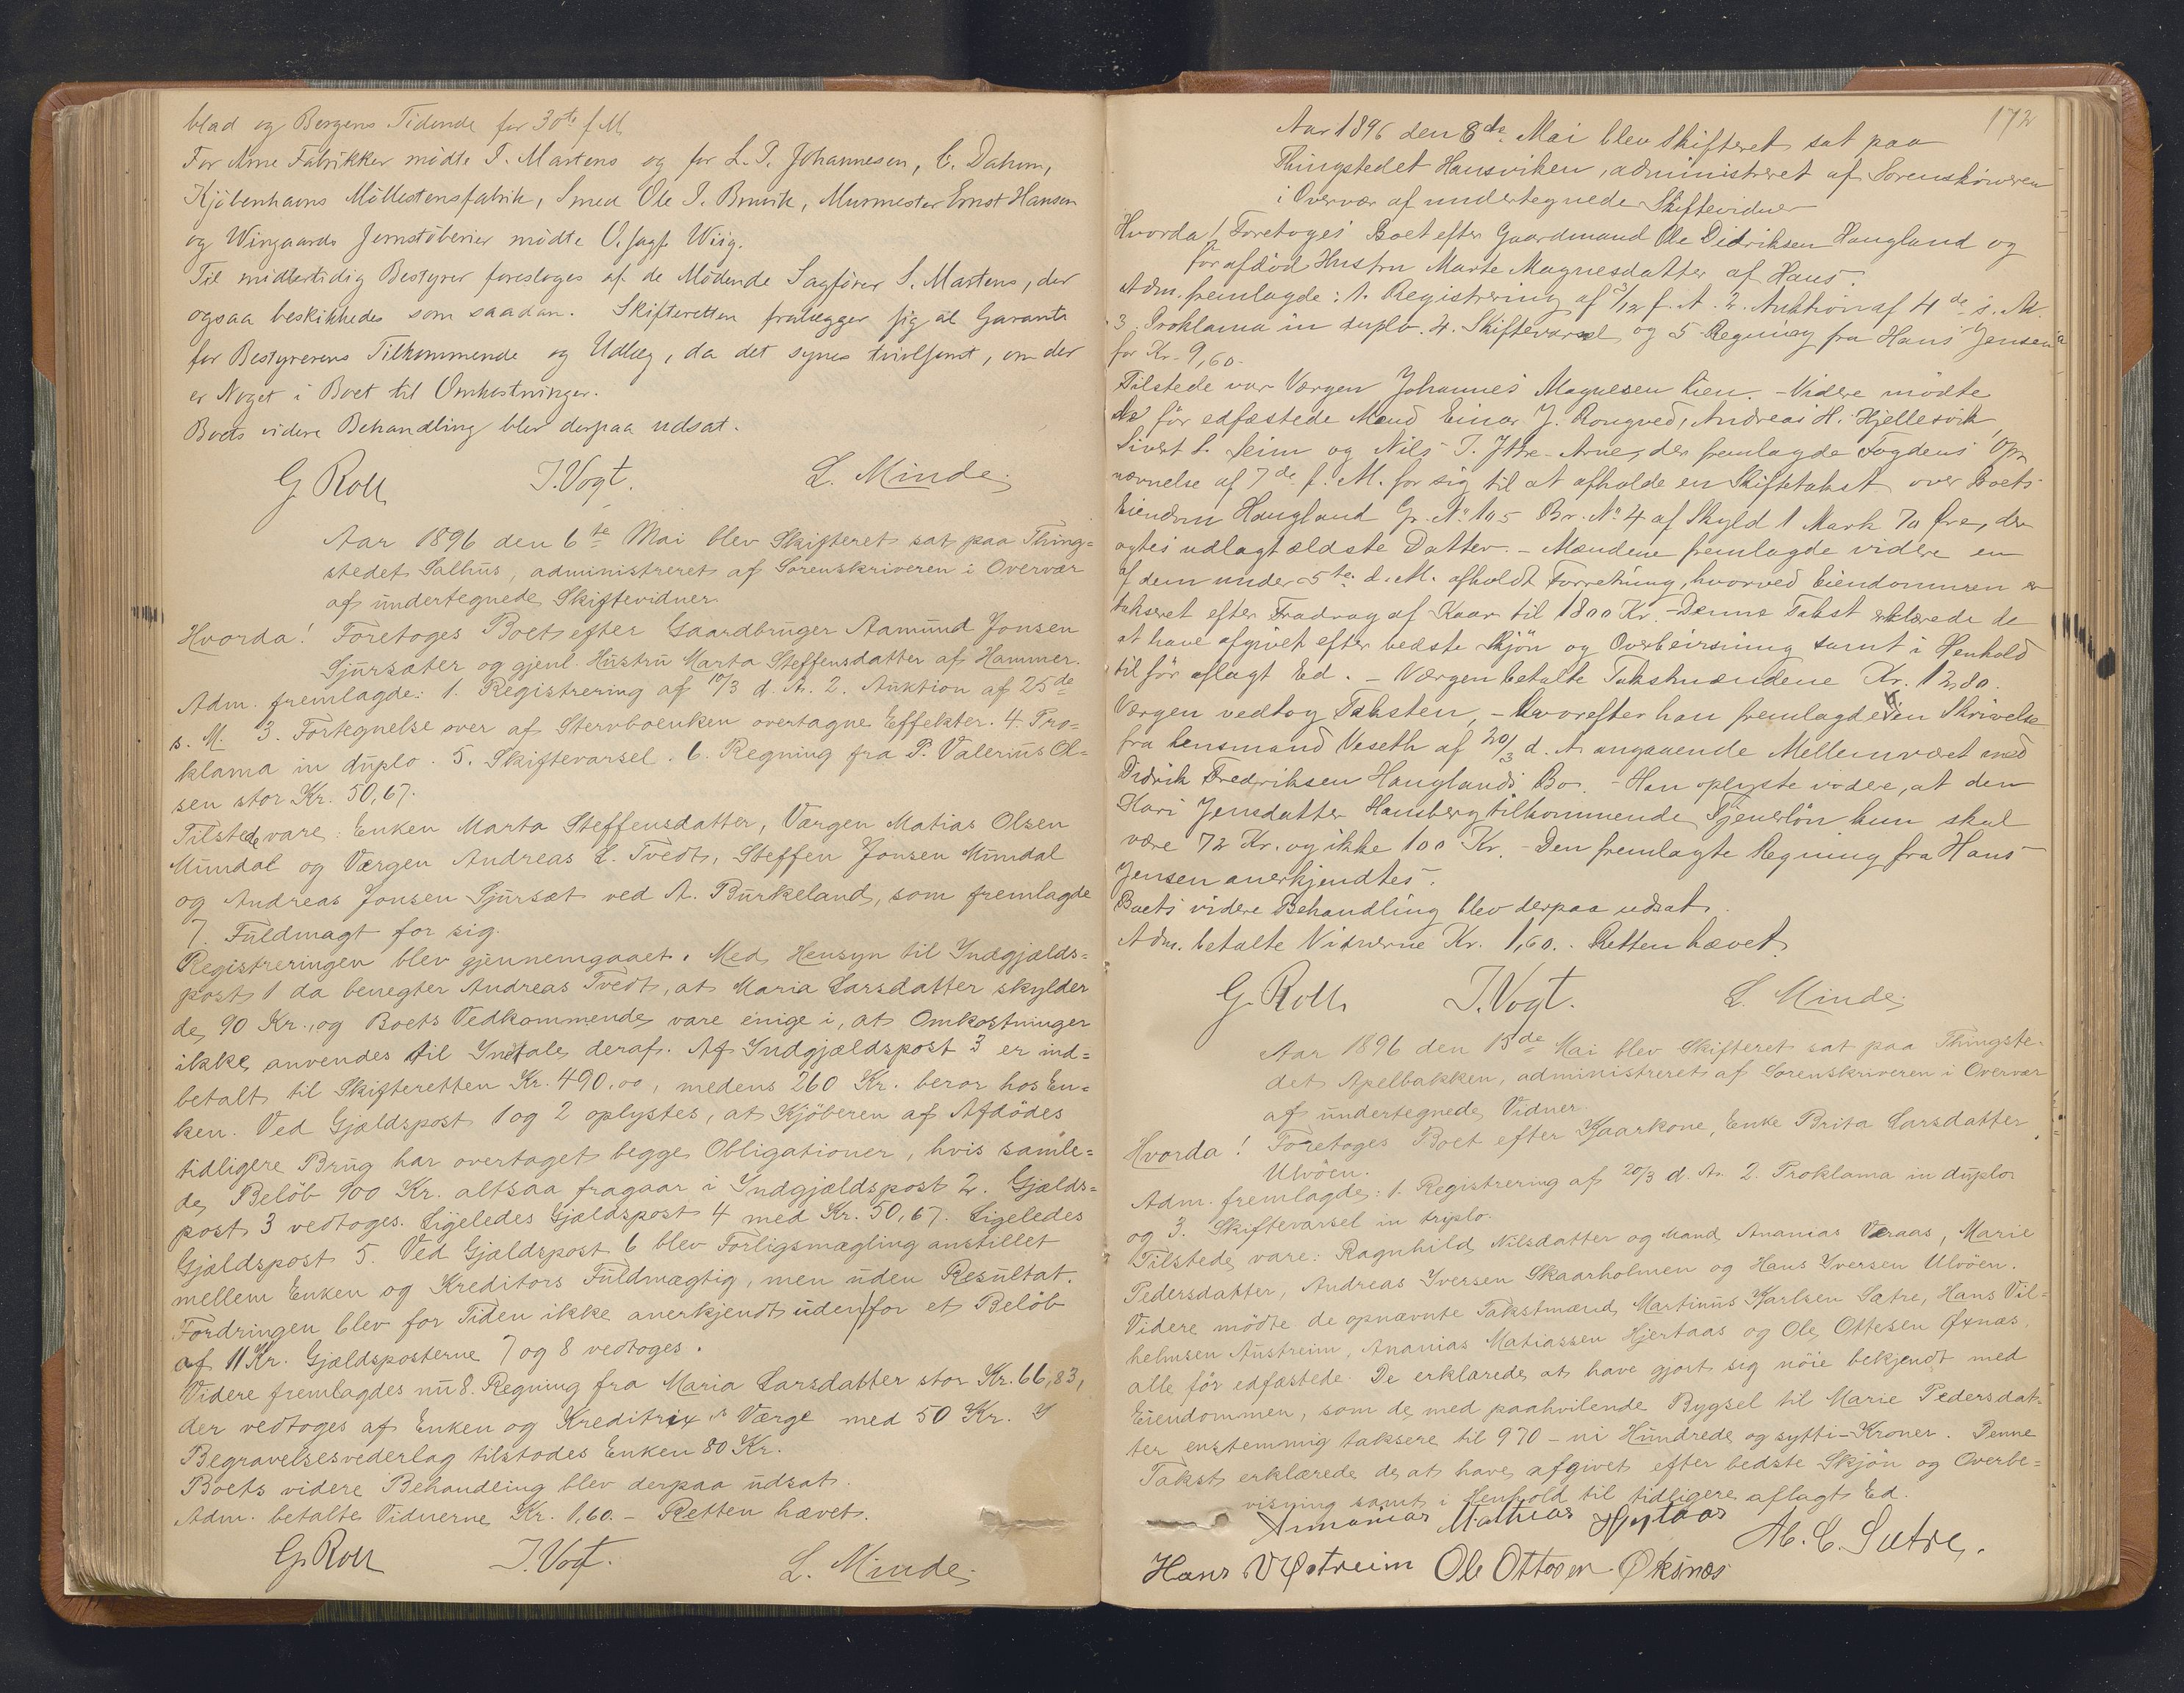 blad og Bergens Tidende for 30te f. M.
For Arne Fabrikker mødte S. Martens og for L. P. Johannesen, C. Dahm,
Kjøbenhavns Møllestensfabrik, Smed Ole I. Bruvik, Murmester Ernst Hansen
og Wingaards Jernstøberier mødte O.sagf. Wiig.
Til midlertidig Bestyrer foresloges af de Mødende Sagfører S. Martens, der
ogsaa beskikkedes som saadan. Skifteretten fralægger sig al Garanti
for Bestyrerens Tilkommende og Udlæg, da det synes tvivlsomt, om der
er Noget i Boet til Omkostninger.
Boets videre Behandling blev derpaa udsat.
G. Roll J. Vogt. L. Minde
Aar 1896 den 6te Mai blev Skifteret sat paa Thing=
stedet Salhus, administreret af Sorenskriveren i Overvær
af undertegnede Skiftevidner.
Hvorda! Foretoges Boet efter Gaardbruger Aamund Jonsen
Sjursæter og gjenl. Hustru Marta Steffensdatter af Hammer.
Adm. fremlagde: 1. Registrering af 10/3 d. A. 2. Auktion af 25de
s. M. 3. Fortegnelse over af Stervboenken overtagne Effekter. 4. Pro=
klama in duplo. 5. Skiftevarsel. 6. Regning fra P. Valerius Ol=
sen stor Kr. 50,67.
Tilstede vare: Enken Marta Steffensdatter, Værgen Matias Olsen
Mundal og Værgen Andreas L. Tvedt, Steffen Jonsen Mundal
og Andreas Jonsen Sjursæt ved A. Burkeland, som fremlagde
7. Fuldmagt for sig.
Registreringen blev gjennemgaaet. Med Hensyn til Indgjælds=
post 1 da benegter Andreas Tvedt, at Maria Larsdatter skylder
de 90 Kr., og Boets Vedkommende vare enige i, at Omkostninger
ikke anvendes til Indtale deraf. Af Indgjældspost 3 er ind=
betalt til Skifteretten Kr. 490,00, medens 260 Kr. beror hos En=
ken. Ved Gjældspost 1 og 2 oplystes, at Kjøberen af Afdødes
tidligere Brug har overtaget begge Obligationer, hvis samle=
de Beløb 900 Kr. altsaa fragaar i Indgjældspost 2. Gjælds=
post 3 vedtoges. Ligeledes Gjældspost 4 med Kr. 50,67. Ligeledes
Gjældspost 5. Ved Gjældspost 6 blev Forligsmægling anstillet
mellem Enken og Kreditors Fuldmægtig, men uden Resultat.
Fordringen blev for Tiden ikke anerkjendt uden for et Beløb
af 11 Kr. Gjældsposterne 7 og 8 vedtoges.
Videre fremlagdes nu 8. Regning fra Maria Larsdatter stor Kr. 66,83,
der vedtoges af Enken og Kreditrix's Værge med 50 Kr. I
Begravelsesvederlag tilstodes Enken 80 Kr.
Boets videre Behandling blev derpaa udsat.
Adm. betalte Vidnerne Kr. 1,60. - Retten hævet.
G. Roll J. Vogt. L. Minde
172
Aar 1896 den 8de Mai blev Skifteret sat paa
Thingstedet Hausviken, administreret af Sorenskriveren
i Overvær af undertegnede Skiftevidner
Hvorda! Foretoges Boet efter Gaardmand Ole Didriksen Haugland og
før afdød Hustru Marte Magnesdatter af Haus.
Adm. fremlagde: 1. Registrering af /12 f. A. 2. Auktion af 4de s. M.
3. Proklama in duplo. 4. Skiftevarsel og 5 Regning fra Hans Jensen
for Kr. 9,60.
Tilstede var Værgen Johannes Magnesen Lien. - Videre mødte
de før edfæstede Mænd Einar J. Rongved, Andreas H. Hjellesvik
Sivert S. Seim og Nils T. Ytre-Arne, der fremlagde Fogdens Op
nævnelse af 7de f. M. for sig til at afholde en Skiftetakst over Boets
Eiendom Haugland Gr. No 105 Br. No 4 af Skyld 1 Mark 70 Øre, der
agtes udlagt ældste Datter. - Mændene fremlagde videre en
af dem under 5te d. M. afholdt Forretning, hvorved Eiendommen er
takseret efter Fradrag af Kaar til 1800 Kr. - Denne Takst erklærede de
at have afgivet efter bedste Skjøn og Overbeivsning samt i Henhold
til før aflagt Ed. - Værgen betalte Takstmændene Kr. 12,80.
Værgen vedtog Taksten, - hvorefter han fremlagde en Skrivelse
fra Lensmand Veseth af 20/3 d. A. angaaende Mellemværet med
Didrik Fredriksen Hauglands Bo. - Han oplyste videre, at den
Kari Jensdatter Hausberg tilkommende Tjenerløn kun skal
være 72 Kr. og ikke 100 Kr. - Den fremlagte Regning fra Hans
Jensen anerkjendtes.
Boets videre Behandling blev derpaa udsat.
Adm. betalte Vidnerne Kr. 1,60. . Retten hævet.
G. Roll J. Vogt. L. Minde
Aar 1896 den 13de Mai blev Skifteret sat paa Thingste=
det Apelbakken, administreret af Sorenskriveren i Overvær
af undertegnede Vidner.
Hvorda! Foretoges Boet efter Kaarkone, Enke Brita Larsdatter
Ulvøen.
Adm. fremlagde: 1. Registrering af 20/3 d. A. 2. Proklama in duplo
og 3. Skiftevarsel in triplo.
Tilstede vare: Ragnhild Nilsdatter og Mand Ananias Væraas, Marie
Pedersdatter, Andreas Iversen Skaarholmen og Hans Iversen Ulvøen.
Videre mødte de opnævnte Takstmænd Martinus Karlsen Sætre, Hans Vil=
helmsen Austreim, Ananias Matiassen Hjertaas og Ole Ottesen Øxnæs,
alle før edfæstede. De erklærede at have gjort sig nøie bekjendt med
Eiendommen, som de med paahvilende Bygsel til Marie Pedersdat=
ter enstemmig taksere til 970 - ni Hundrede og sytti - Kroner. Denne
Takst erklærede de at have afgivet efter bedste Skjøn og Overbe=
visning samt i Henhold til tidligere aflagt Ed.
Annanias Mathias Hjertaas M. C. Sætre.
Hans V Østreim Ole Ottesen Øksnæs